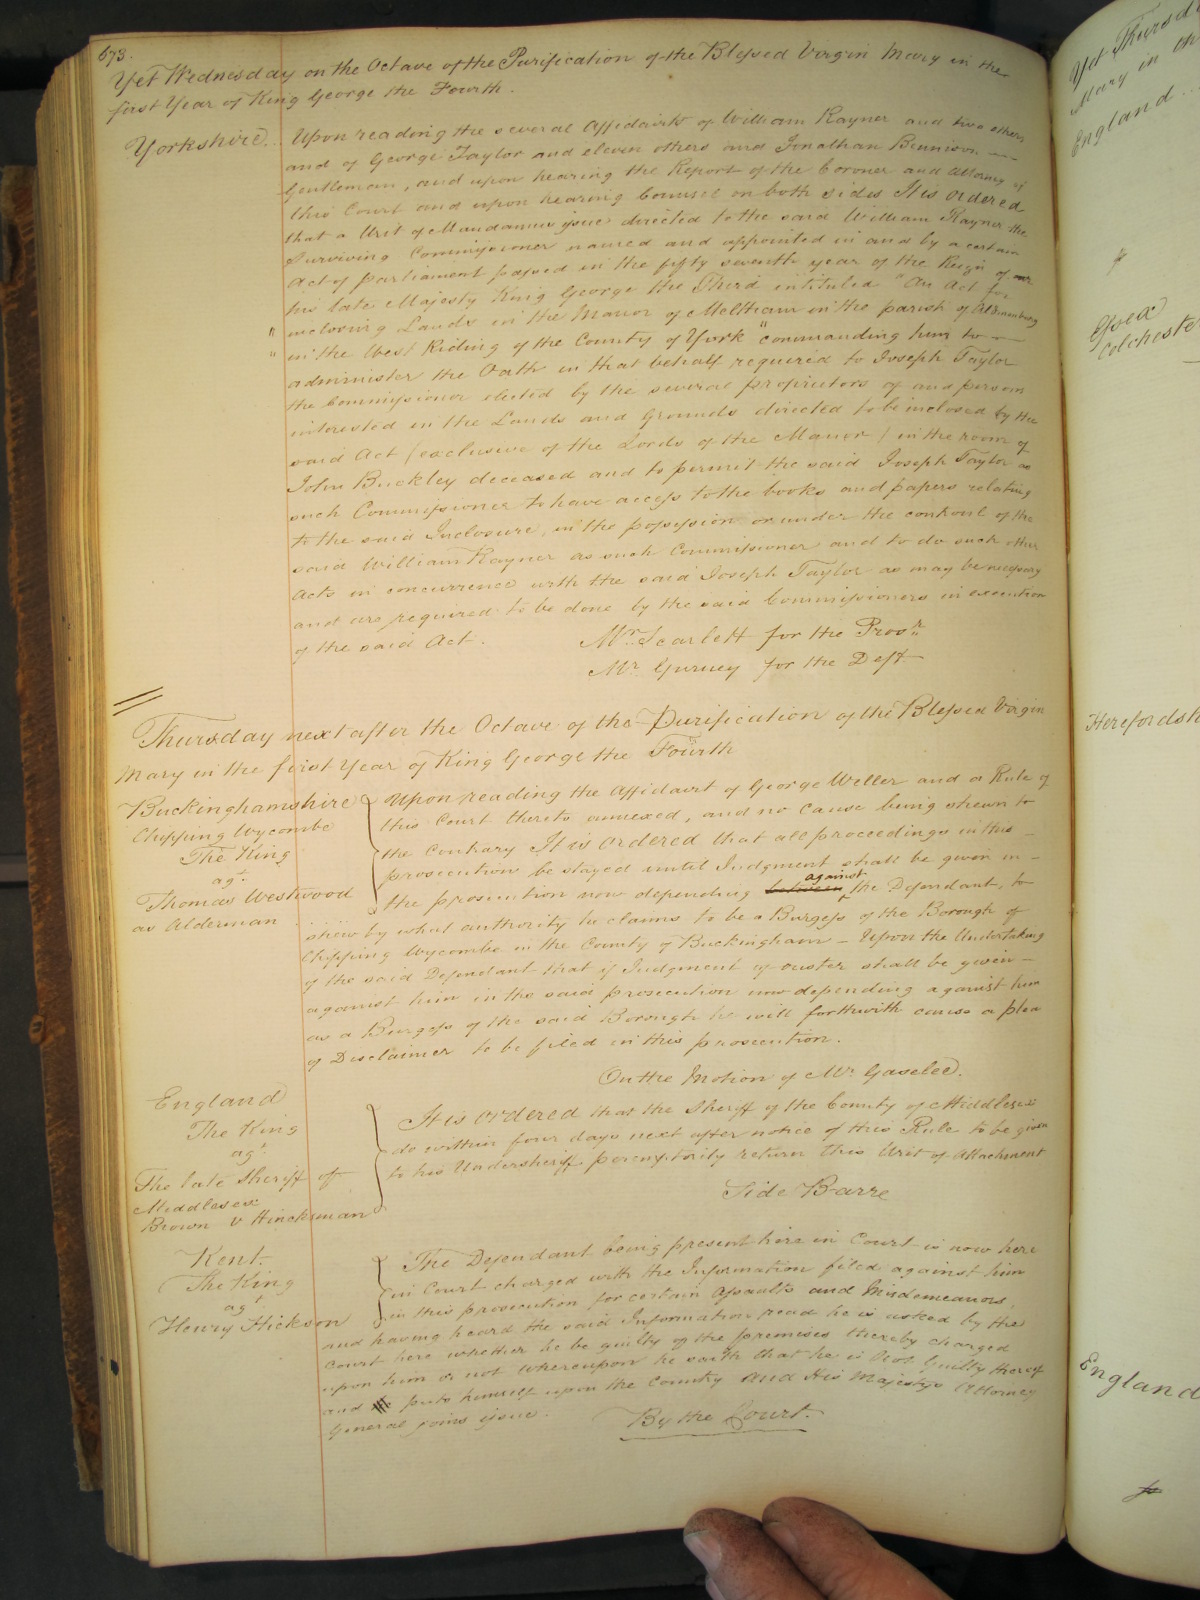 673.
Yet Wednesday on the Octave of the Purification of the Blessed Virgin Mary in the
first Year of King George the Fourth.
Yorkshire. Upon reading the several Affidavits of William Rayner and two others
and of George Taylor and eleven others and Jonathan Bennison
Gentleman, and upon hearing the Report of the Coroner and Attorney of
this Court and upon hearing Counsel on both sides It is ordered
that a Writ of Mandamus issue directed to the said William Rayner the
Surviving Commissioner named and appointed in and by a certain
Act of parliament passed in the fifty seventh year of the Reign of
his late Majesty King George the Third intituled "An Act for
" inclosing Lands in the Manor of Meltham in the parish of Almondbury
" in the West Riding of the County of York" commanding him to
administer the Oath in that behalf required to Joseph Taylor
the Commissioner elected by the several proprietors of and persons
interested in the Lands and Grounds directed to be inclosed by the
said Act (exclusive of the Lords of the Manor) in the room of
John Buckley deceased and to permit the said Joseph Taylor as
such Commissioner to have access to the books and papers relating
to the said Inclosure, in the possession or under the controul of the
said William Rayner as such Commissioner and to do such other
Acts in concurrence with the said Joseph Taylor as may be necessary
and are required to be done by the said Commissioners in execution
of the said Act.
Mr. Scarlett for the Prosr.
Mr. Gurney for the Deft
Thursday next after the Octave of the Purification of the Blessed Virgin
Mary in the first Year of King George the Fourth
Buckinghamshire
Chipping Wycombe
The King
agt.
Thomas Westwood
as Alderman
Upon reading the Affidavit of George Weller and a Rule of
this Court thereto annexed, and no cause being shewn to
the contrary It is ordered that all proceedings in this
prosecution be stayed until Judgment shall be given in
the prosecution now depending between against the Defendant, to
shew by what authority he claims to be a Burgess of the Borough of
Chipping Wycombe in the County of Buckingham - Upon the Undertaking
of the said Defendant that if Judgment of ouster shall be given
against him in the said prosecution now depending against him
as a Burgess of the said Borough he will forthwith cause a plea
of Disclaimer to be filed in this prosecution.
On the Motion of Mr. Gaselee.
England
The King
agt.
The late Sheriff of
Middlesex
Brown v Hincksman
It is ordered that the Sheriff of the County of Middlesex
do within four days next after notice of this Rule to be given
to his Undersheriff peremptorily return this Writ of Attachment
Side Barre
Kent.
The King
agt
Henry Hickson
The Defendant being present here in Court is now here
in Court charged with the Information filed against him
in this prosecution for certain Assaults and Misdemeanors,
and having heard the said Information read he is asked by the
Court here whether he be guilty of the premises thereby charged
upon him or not Whereupon he saith that he is Not Guilty thereof
and puts himself upon the Country and His Majestys Attorney
General joins issue.
By the Court.
Yet Thursd
Mary in th
England
Essex
Colcheste
Herefordsh
England